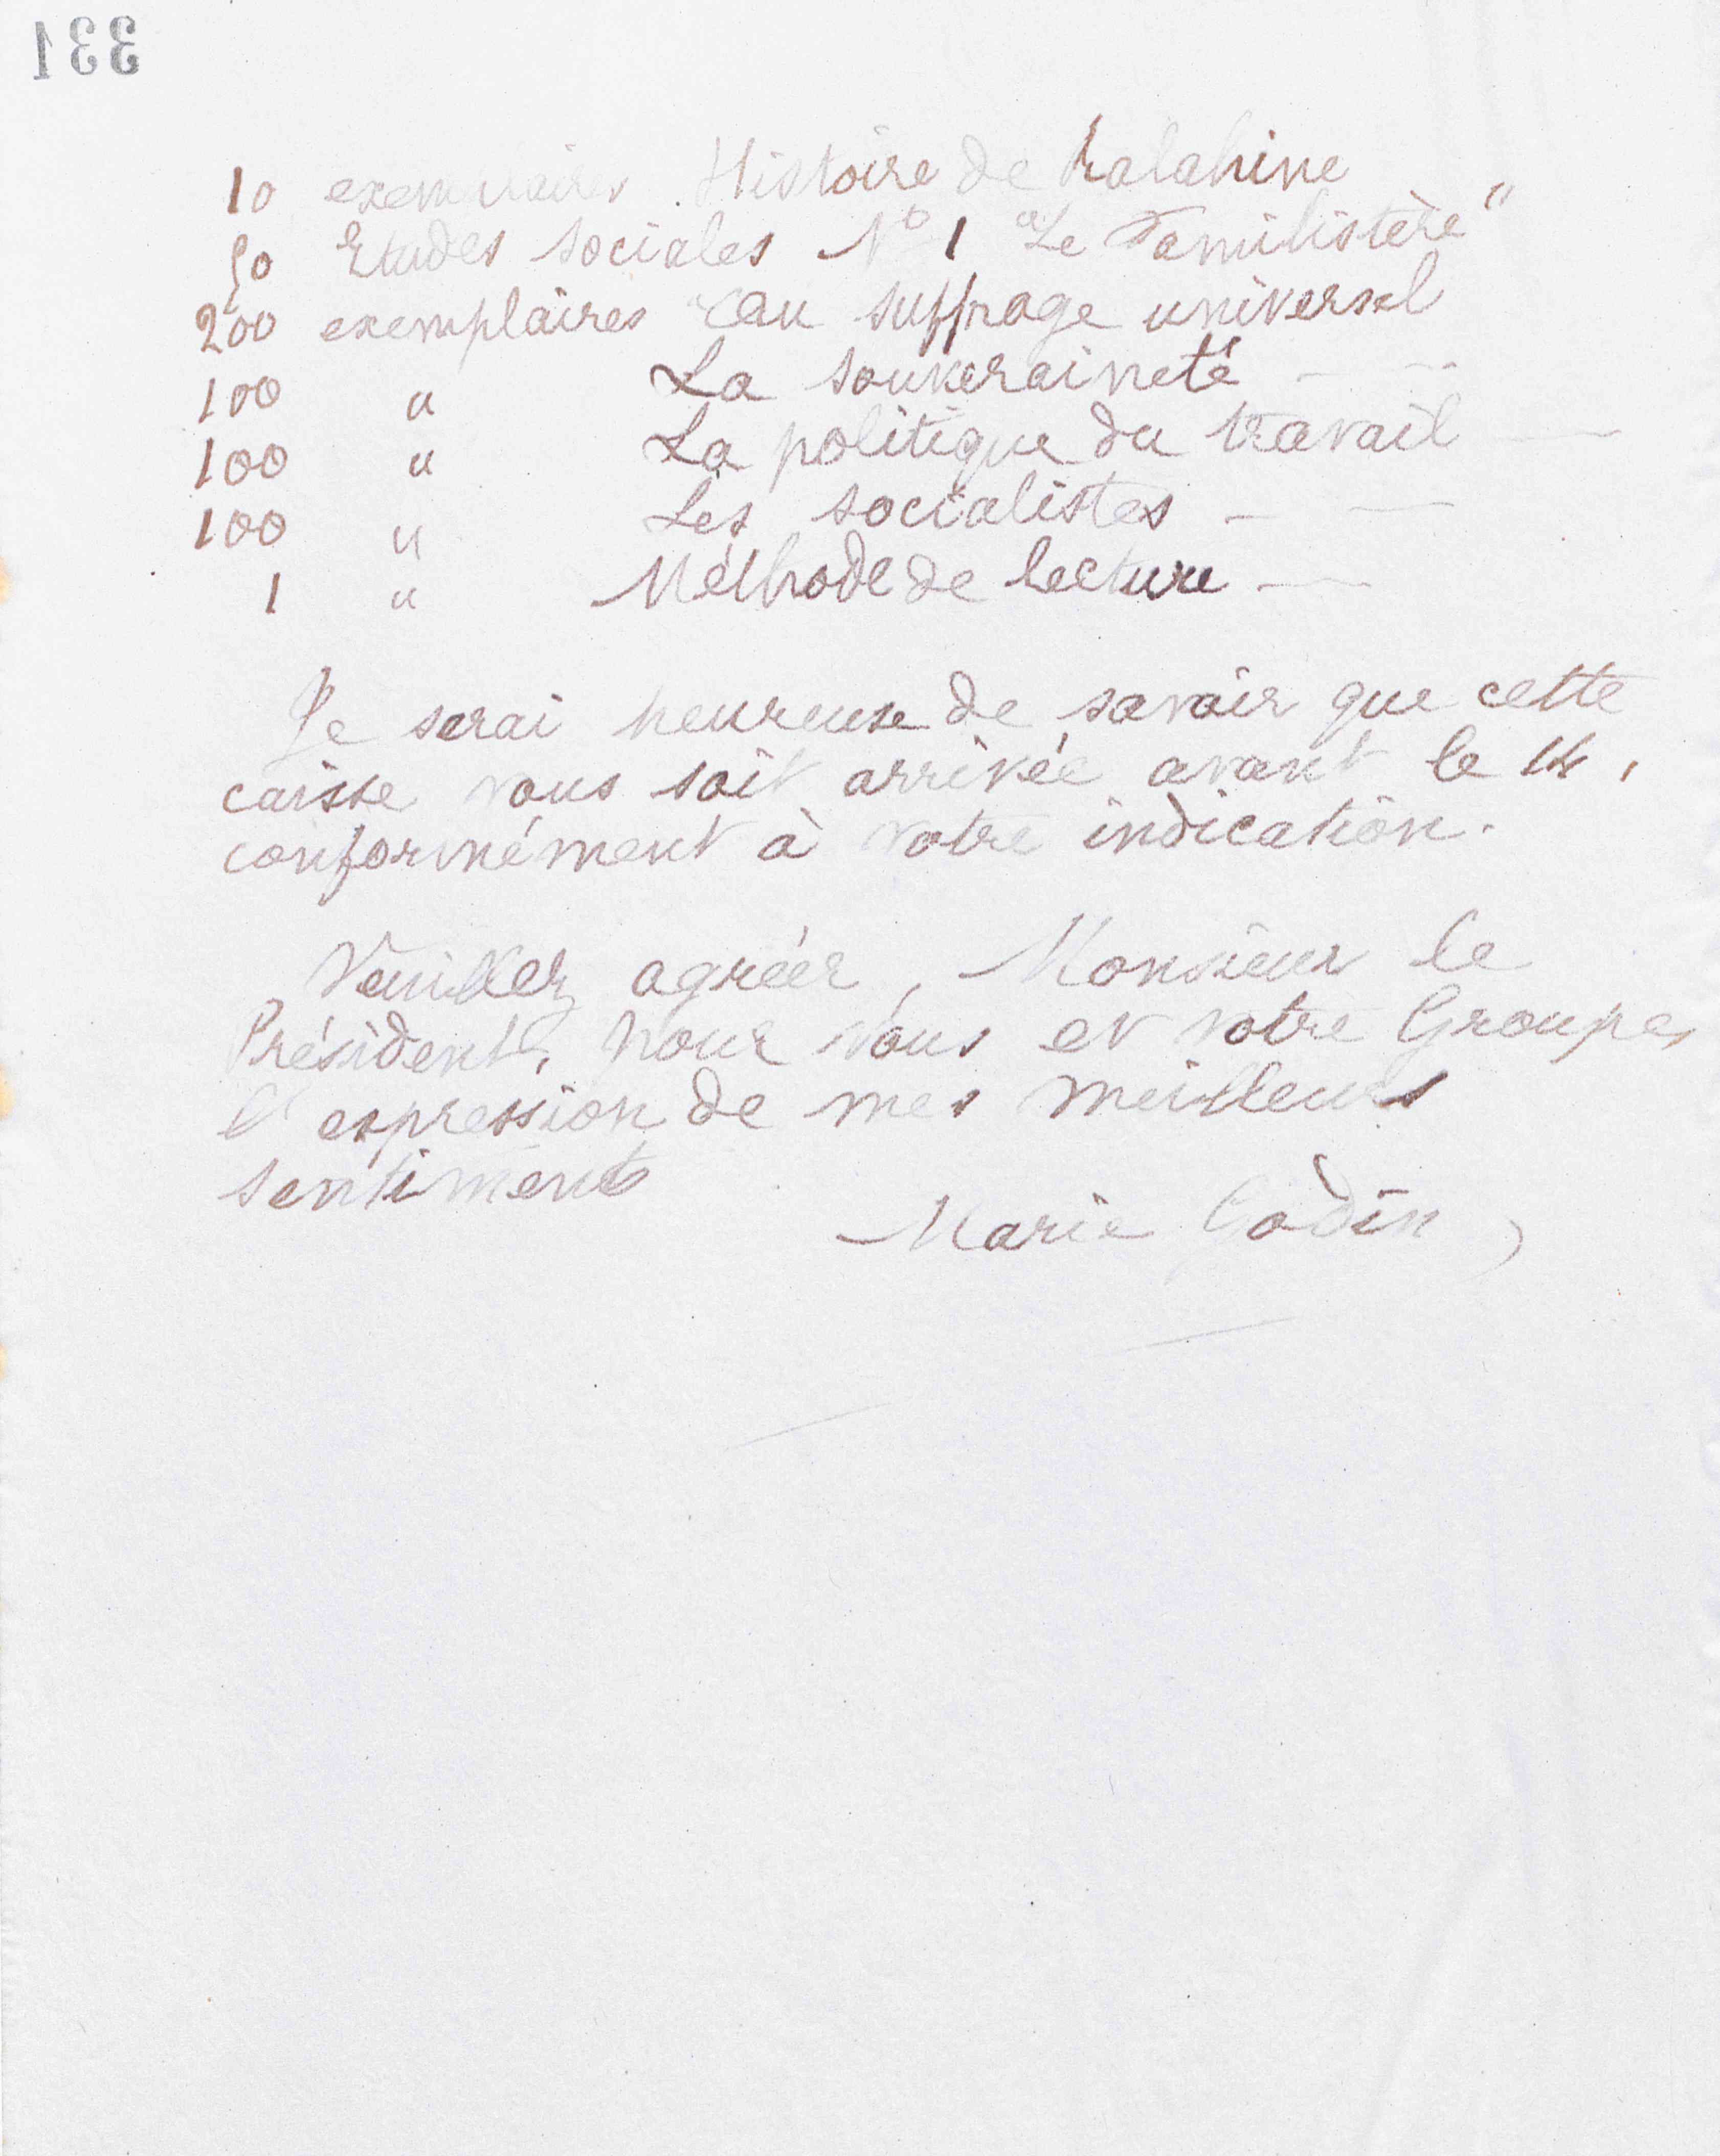 331
10 exemplaires Histoire de Ralahine
50 Etudes sociales N° 1 "Le Familistère"
200 exemplaires Cau suffrage universel
100 " La souveraineté — —
100 " La politique du travail —
100 " Les socialistes — —
1 " Méthode de lecture —
Je serai heureuse de savoir que cette
caisse vous soit arrivée avant le 14,
conformément à votre indication.
Veuillez agréer, Monsieur le
Président, pour vous et votre Groupe,
l'expression de mes meilleurs
sentiments
Marie Godin